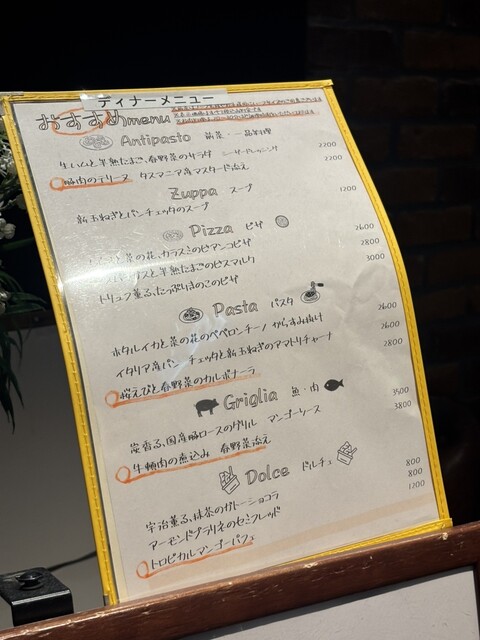 ディナーメニュー
おすすめmenu
Antipasto 前菜・一品料理
生ハムと半熟たまご、春野菜のサラダ シーザードレッシング 2200
豚肉のテリーヌ タスマニア産マスタード添え 2200
Zuppa スープ
新玉ねぎとパンチェッタのスープ 1200
Pizza ピザ
と菜の花、カラスミのビアンコピザ 2600
と半熟たまごのビスマルク 2800
トリュフ薫る、たっぷりきのこのピザ 3000
Pasta パスタ
ホタルイカと菜の花のペペロンチーノ からすみ掛け 2600
イタリア産パンチェッタと新玉ねぎのアマトリチャーナ 2600
桜えびと春野菜のカルボナーラ 2800
Griglia 魚・肉
炭香る、国産豚ロースのグリル マンゴーソース 3500
牛頬肉の煮込み 春野菜添え 3800
Dolce ドルチェ
宇治薫る、抹茶のガトーショコラ 800
アーモンドプラリネのセミフレッド 800
トロピカルマンゴーパフェ 1200